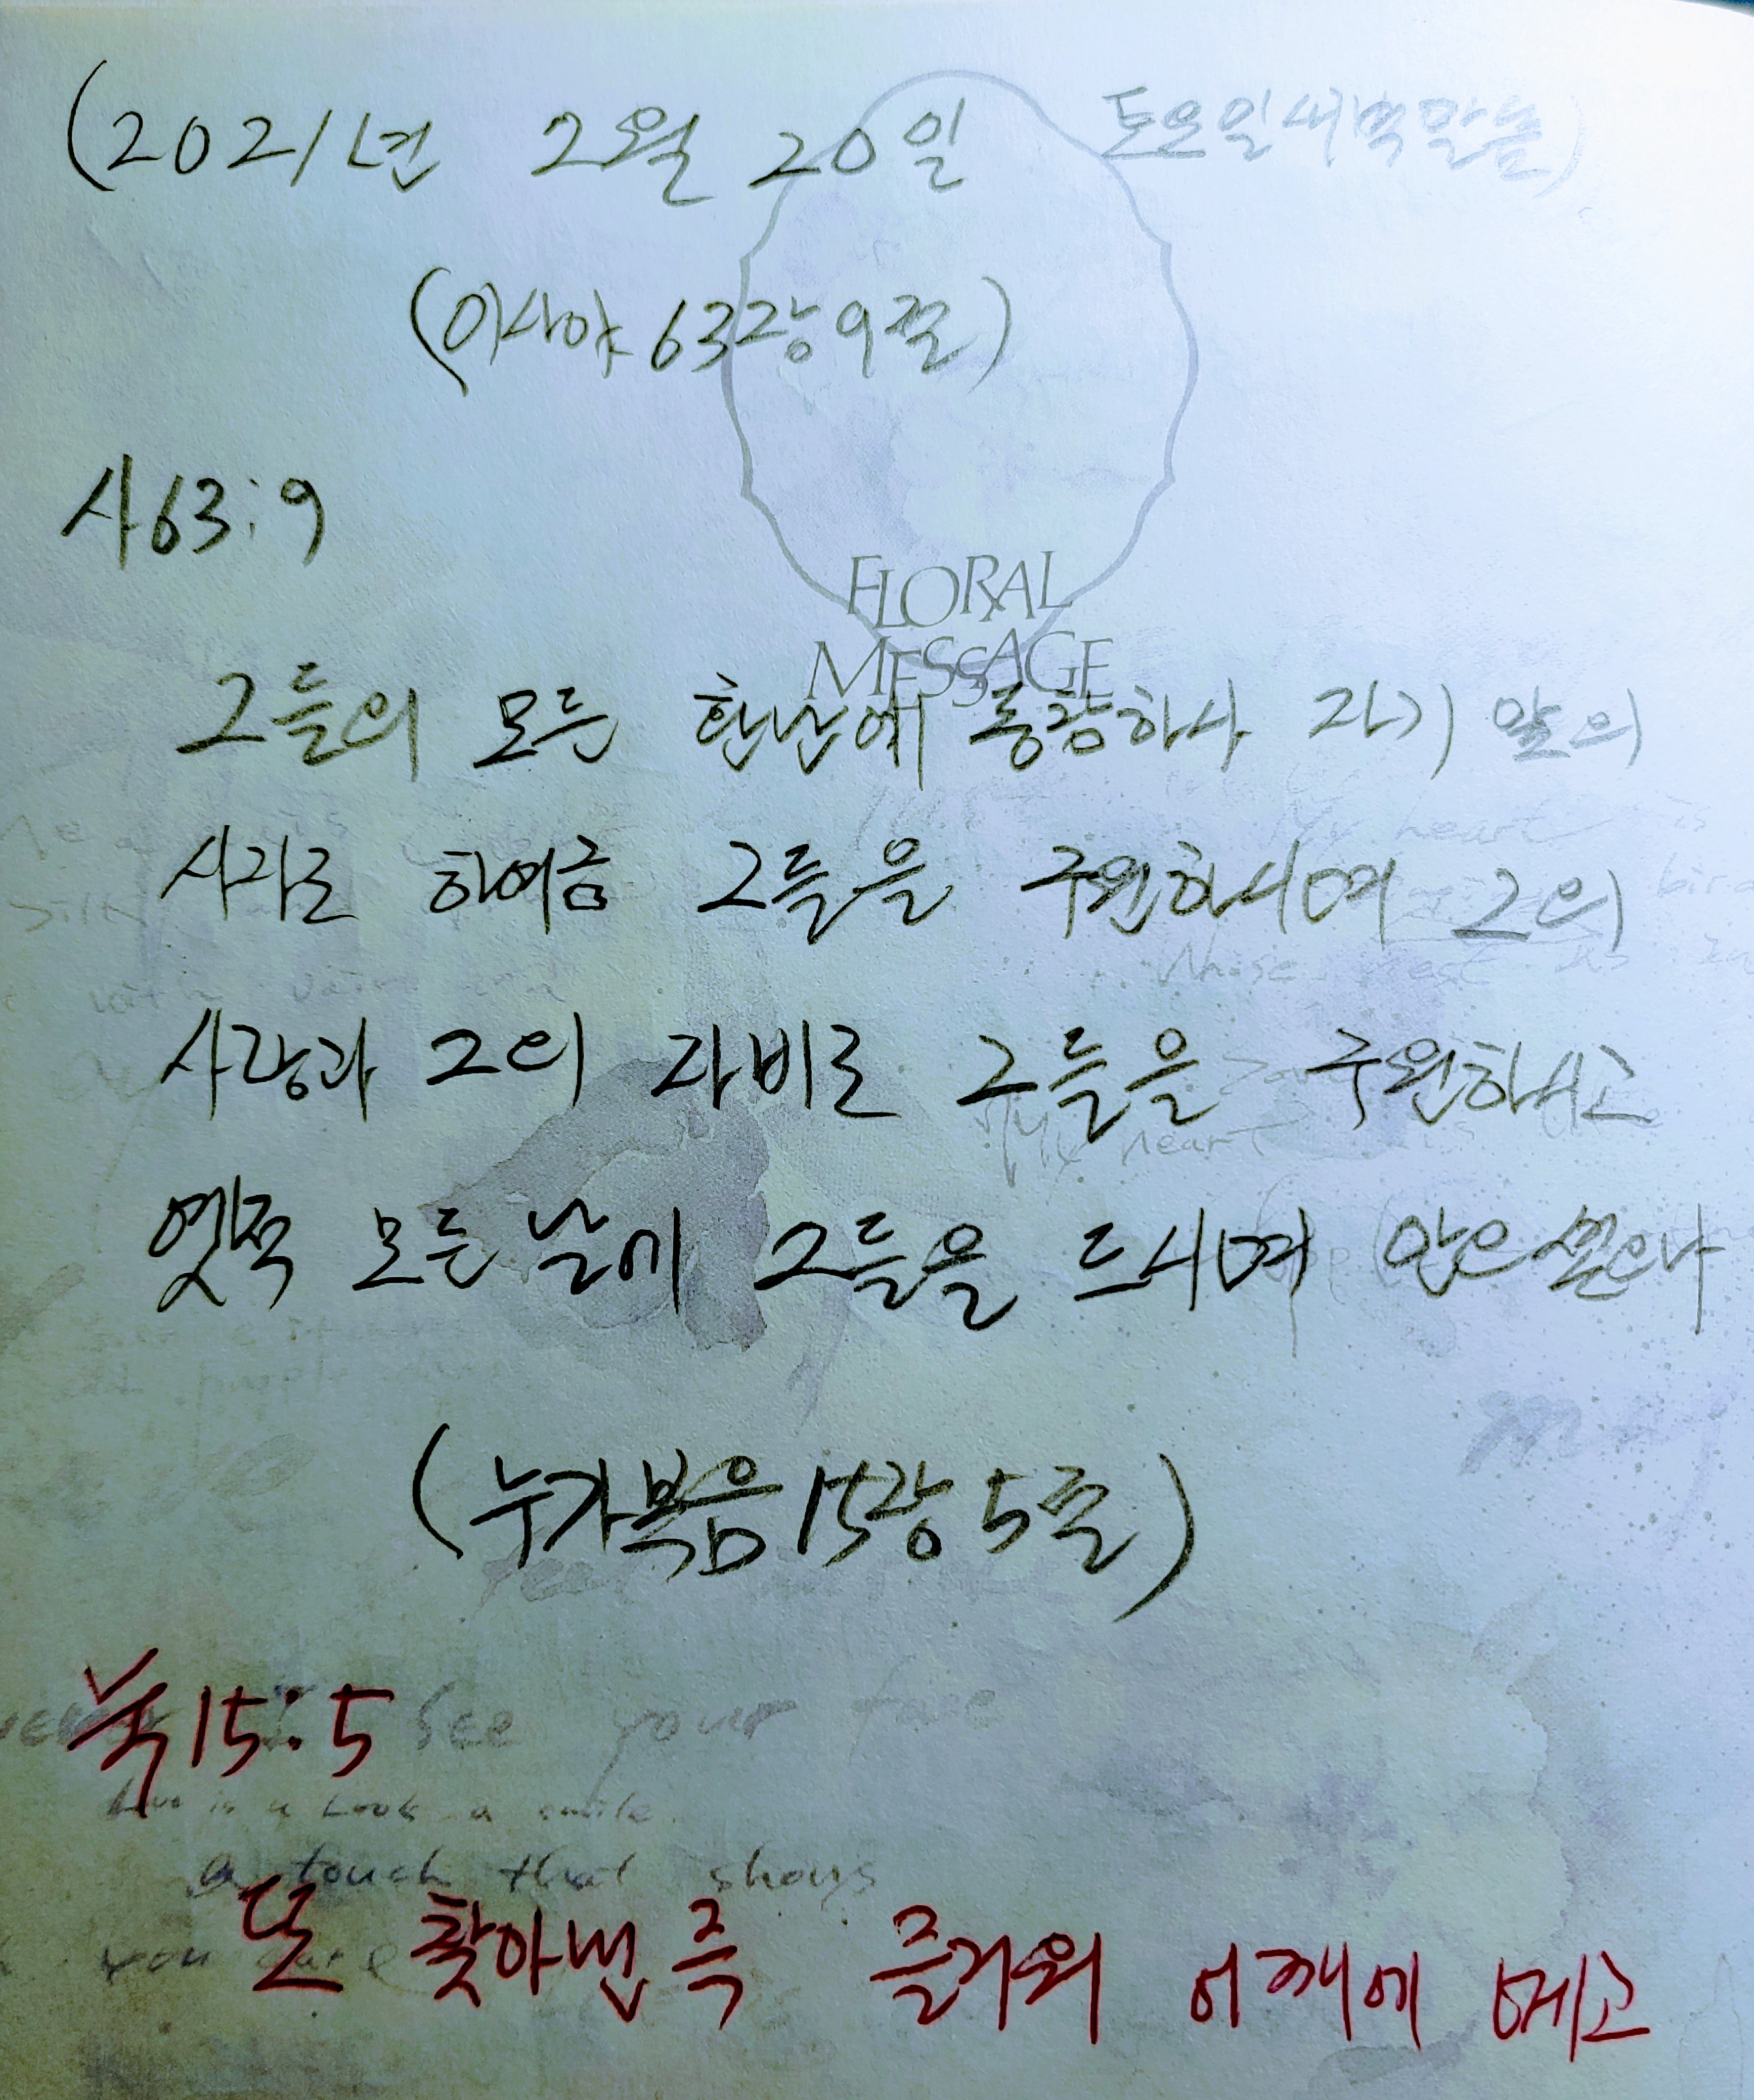 (2021년 2월 20일 토요일새벽말씀)
(이사야 63장 9절)
사63:9
FLORAL
MESSAGE
그들의 모든 환난에 동참하사 자기 앞의
My heart is
사자로 하여금 그들을 구원하시며 그의
사랑과 그의 자비로 그들을 구원하시고
My heart is
옛적 모든 날에 그들을 드시며 안으셨으나
(누가복음15장 5절)
눅15:5
See your face
a Look a smile
a touch that shows
또 찾아낸즉 즐거워 어깨에 메고
you care